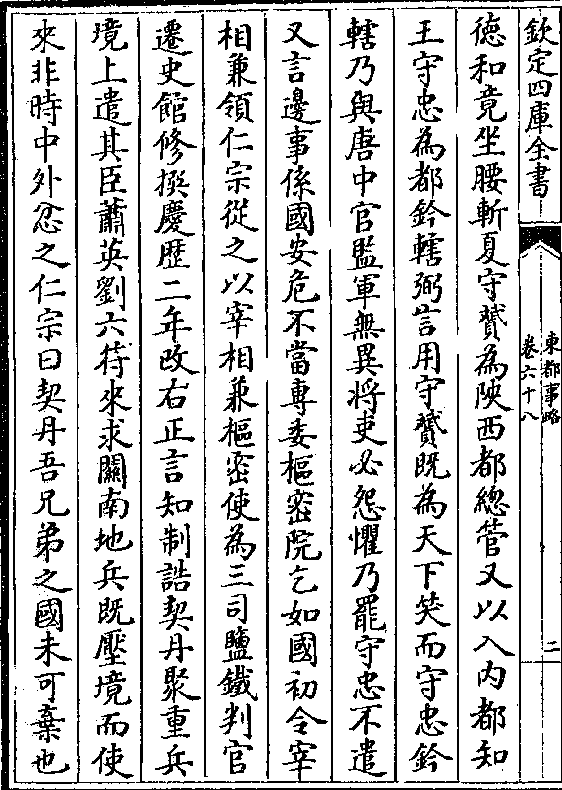 欽定四庫全書
東都事略
卷六十八
二
德和竟坐腰斬夏守贇為陜西都總管又以入内都知
王守忠為都鈐轄弼言用守贇既為天下笑而守忠鈐
轄乃與唐中官監軍無異將吏必怨懼乃罷守忠不遣
又言邊事係國安危不當專委樞密院乞如國初令宰
相兼領仁宗從之以宰相兼樞密使為三司鹽鐵判官
遷史館修撰慶歴二年改右正言知制誥契丹聚重兵
境上遣其臣蕭英劉六符來求關南地兵既壓境而使
來非時中外忿之仁宗曰契丹吾兄弟之國未可棄也